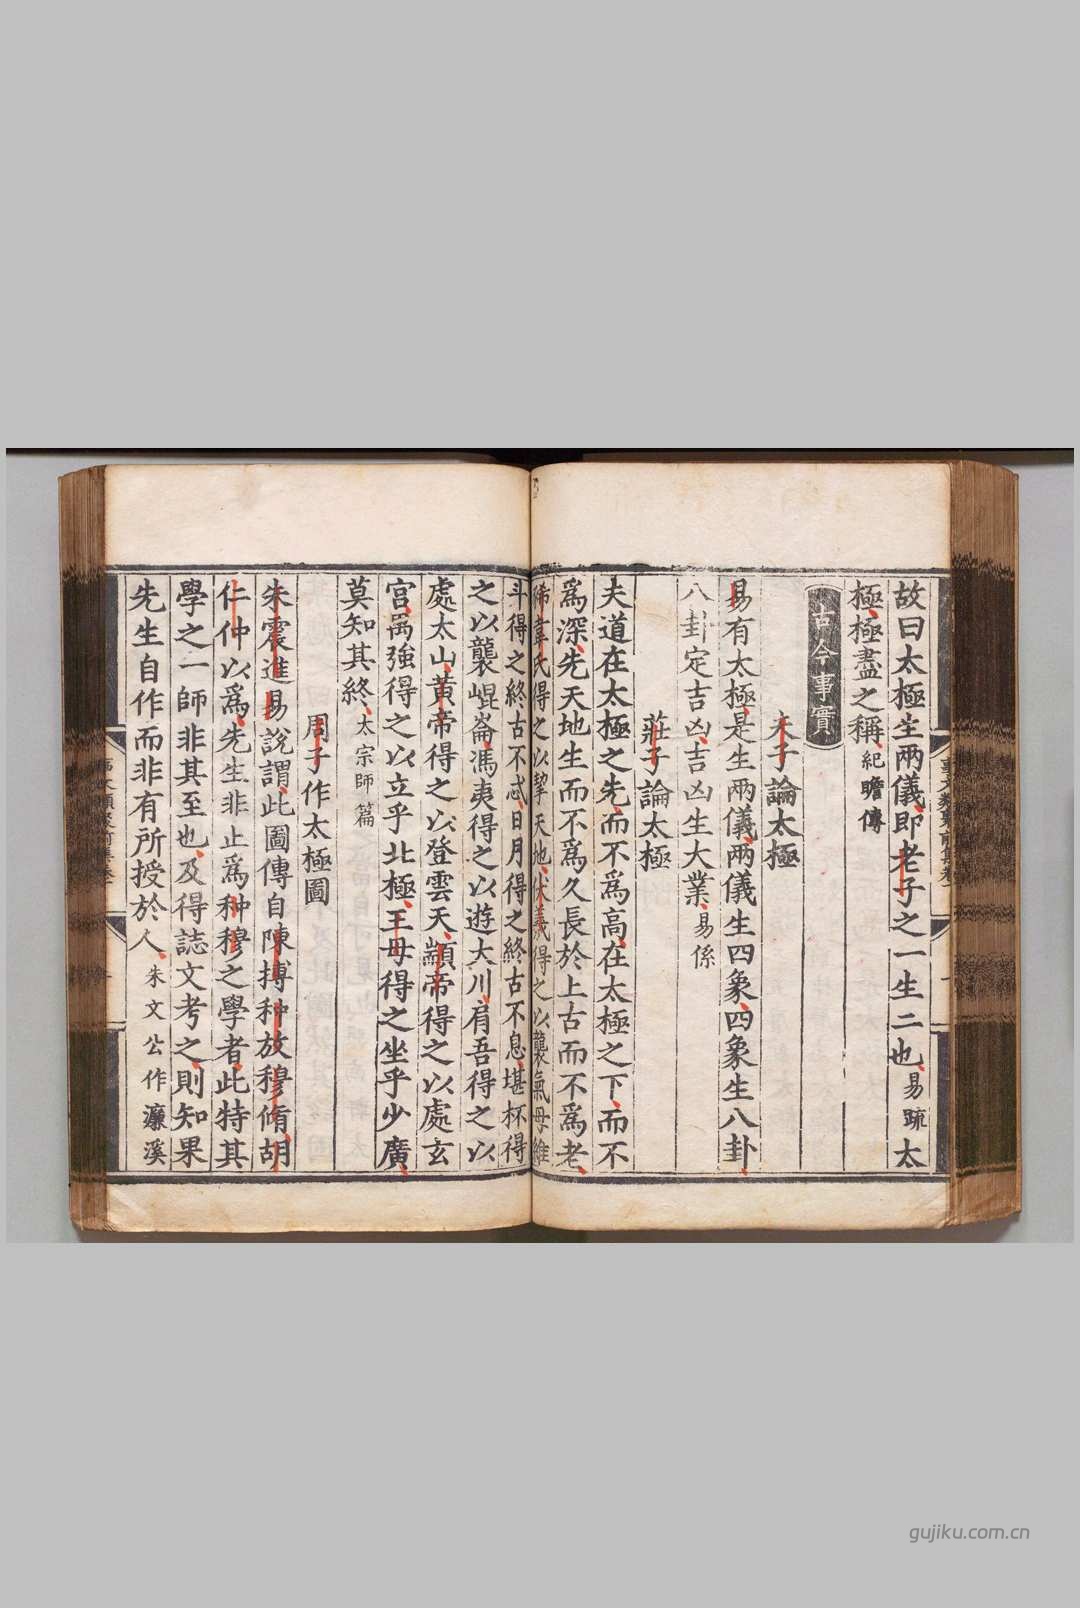 故曰太極生兩儀即老子之一生二也易疏太
極極盡之稱紀瞻傳
古今事實
夫子論太極
易有太極是生兩儀兩儀生四象四象生八卦
八卦定吉凶吉凶生大業易係
莊子論太極
夫道在太極之先而不為高在太極之下而不
為深先天地生而不為久長於上古而不為老
狶韋氏得之以挈天地伏羲得之以襲氣母維
斗得之終古不忒日月得之終古不息堪杯得
之以襲崐崙馮夷得之以遊大川肩吾得之以
處太山黃帝得之以登雲天顓帝得之以處玄
宮禺強得之以立乎北極王母得之坐乎少廣
莫知其終太宗師篇
周子作太極圖
朱震進易說謂此圖傳自陳摶种放穆脩胡
仁仲以為先生非止為种穆之學者此特其
學之一師非其至也及得誌文考之則知果
先生自作而非有所授於人朱文公作濂溪
gujiku.com.cn